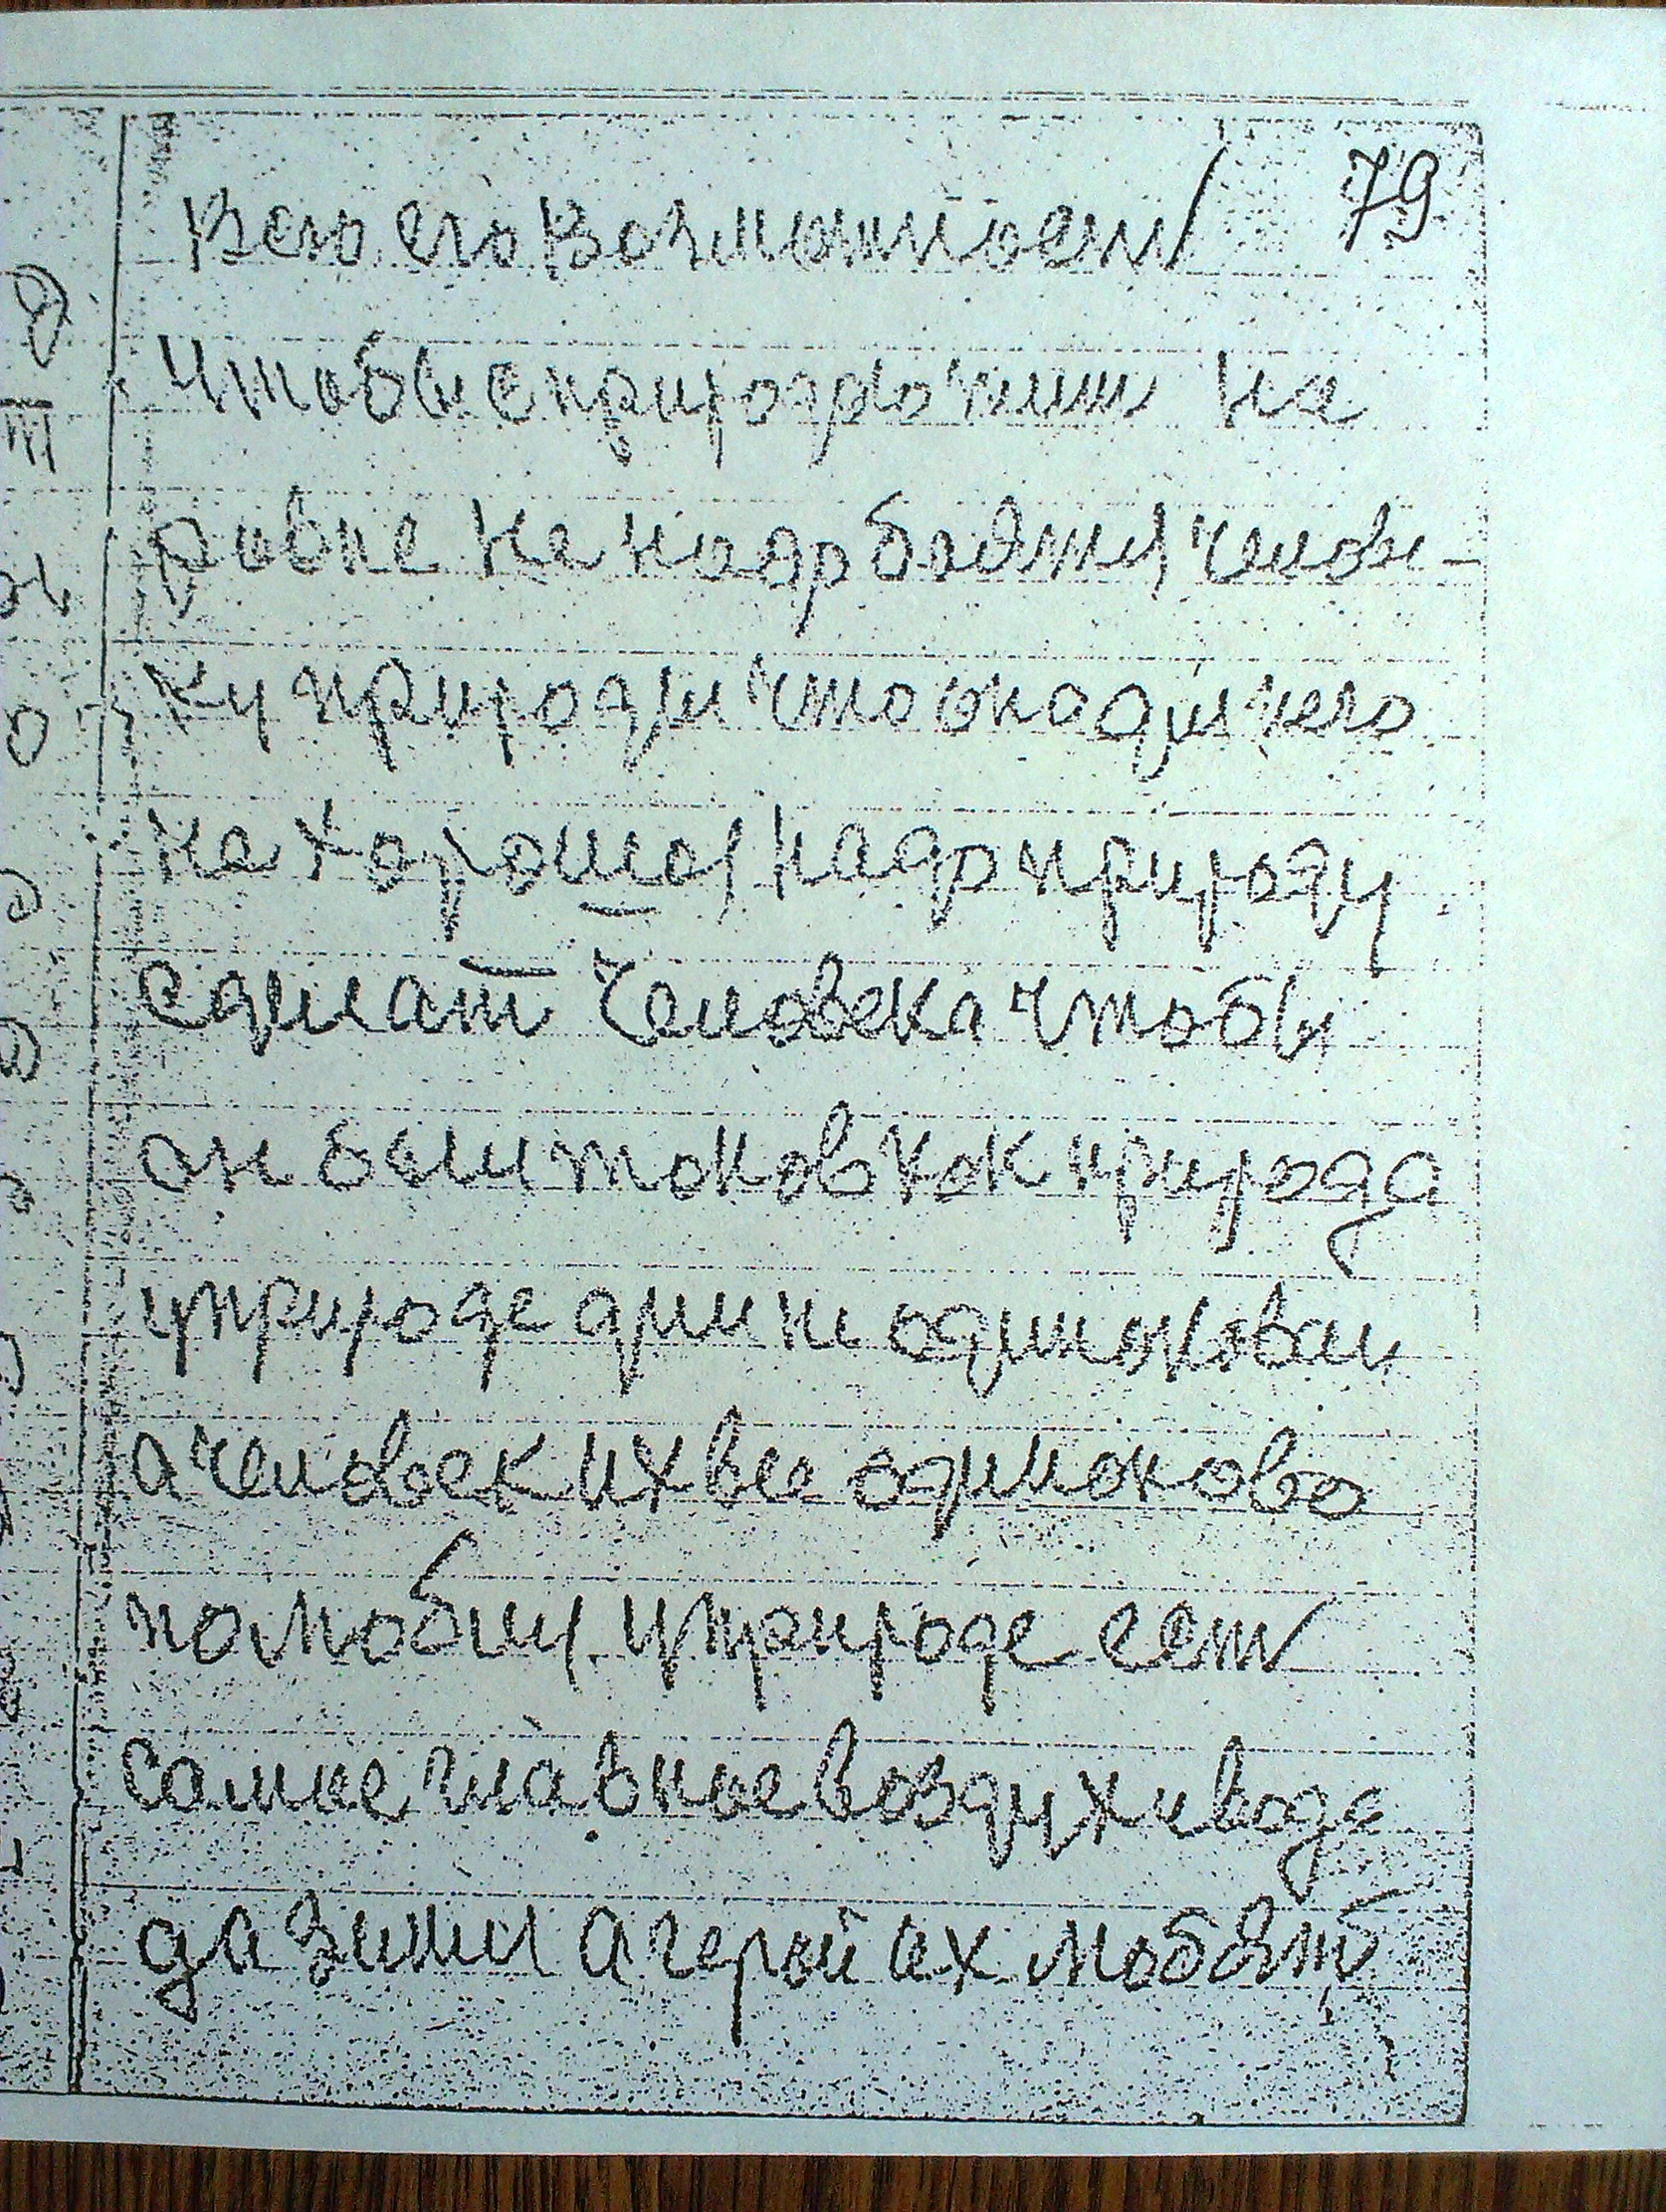 79
Всю его возможност
чтобы с природо жит на
равне не надо боятся челове-
ку природы что она для него
не хорошо надо природу
сделат человека чтобы
он был токов как природа
у природе дни не одинокавы
а человек их все одиноково
полюбил у природе ест
самые главные воздух и вода
да зимля а герой их любят